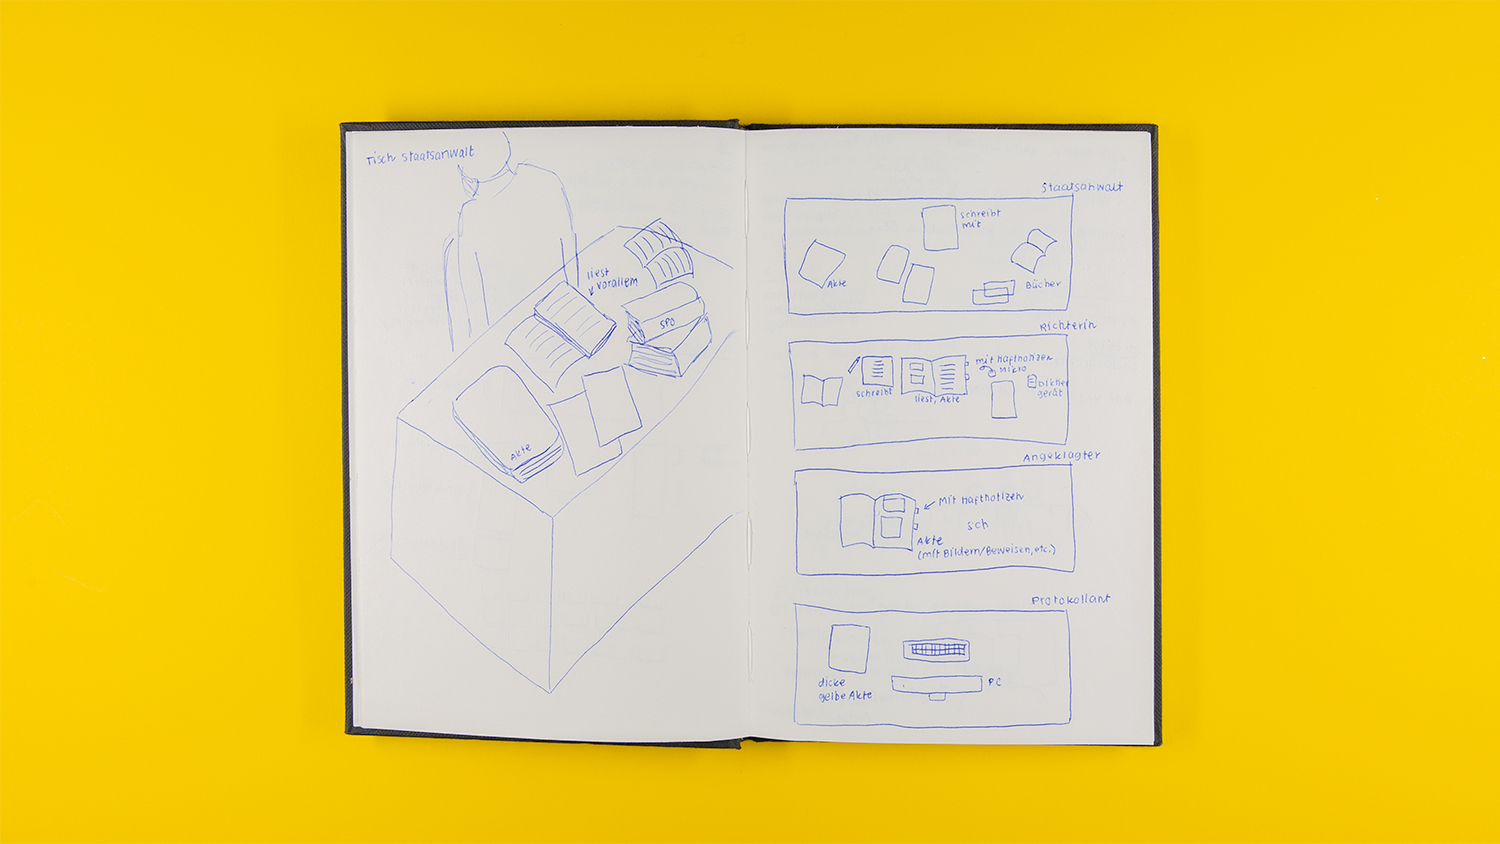 Tisch Staatsanwalt
liest
vorallem
SPO
Akte
Staatsanwalt
schreibt
mit
Akte
Bücher
Richterin
mit Haftnotizen
Mikro
schreibt
liest, Akte
gerät
Angeklagter
Mit Haftnotizen
sch
Akte
(mit Bildern/Beweisen, etc.)
Protokollant
dicke
gelbe Akte
PC